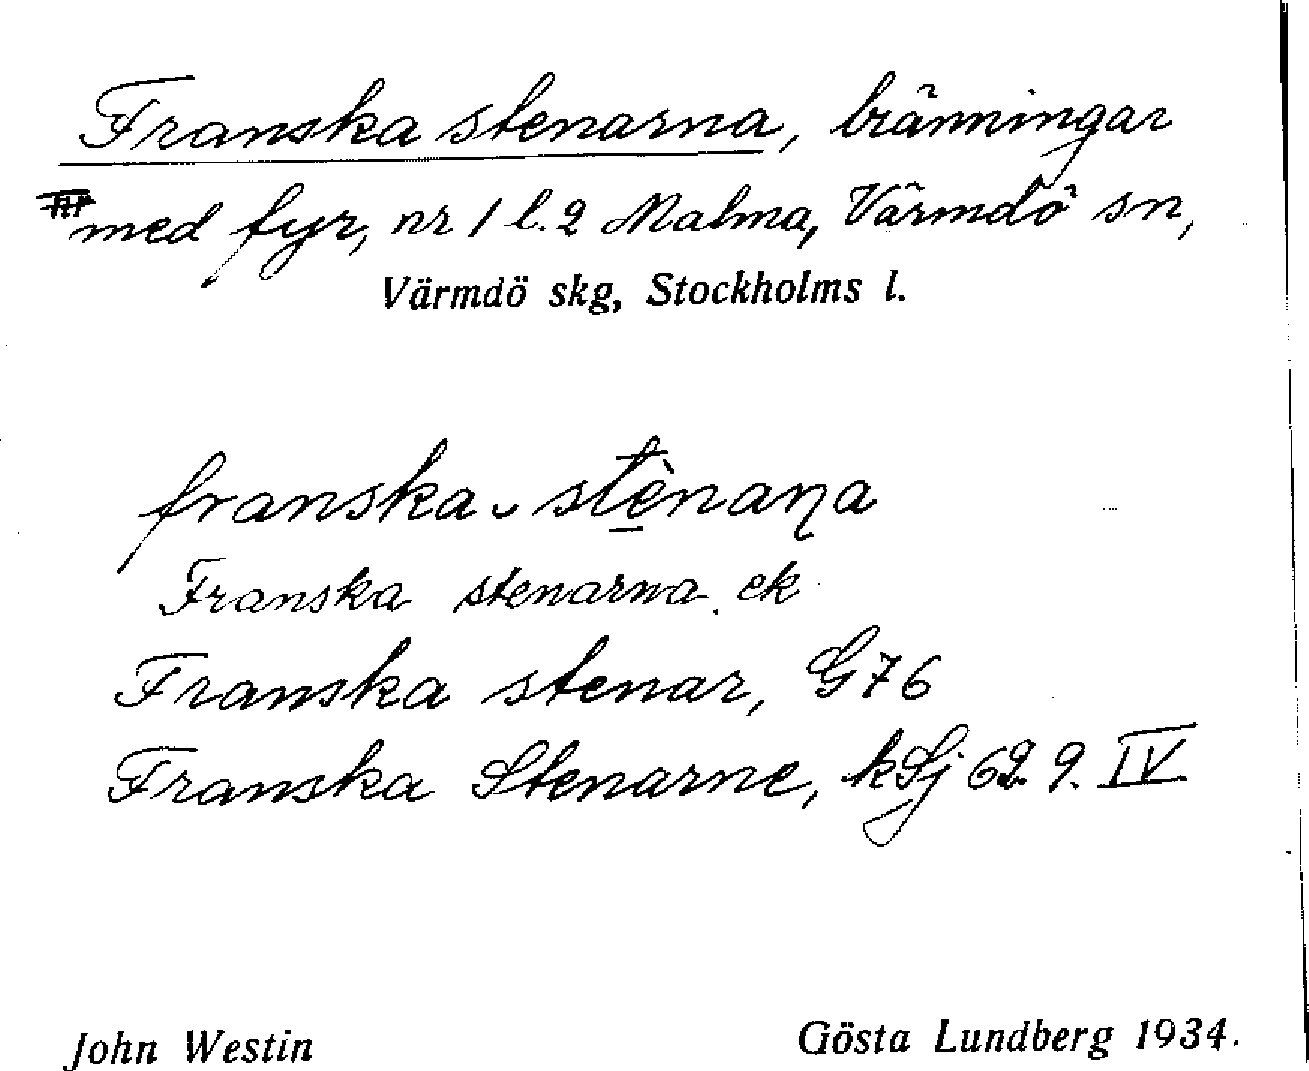 Franska stenarna, bränningar
med fyr, nr 1 l. 2 Malma, Värmdö sn,
Värmdö skg, Stockholms l.
franska ˬ stènaɳa
Franska stenarna. ek
Franska stenar, G76
Franska Stenarne, kSj 62 9. IV
John Westin
Gösta Lundberg 1934.